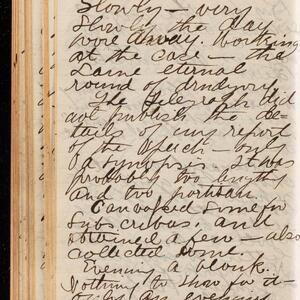 Slowly — very
slowly the day
wore away. Working
at the case — the
same eternal
round of drudgery
The Telegraph did
not publish the de-
tails of my report
of the speech — only
a synopsis. It was
probably too lengthy
and too partisan.
Canvassed some for
subscribers, and
obtained a few — also
collected some.
Evening a blank.
Nothing to show for it—
an evening